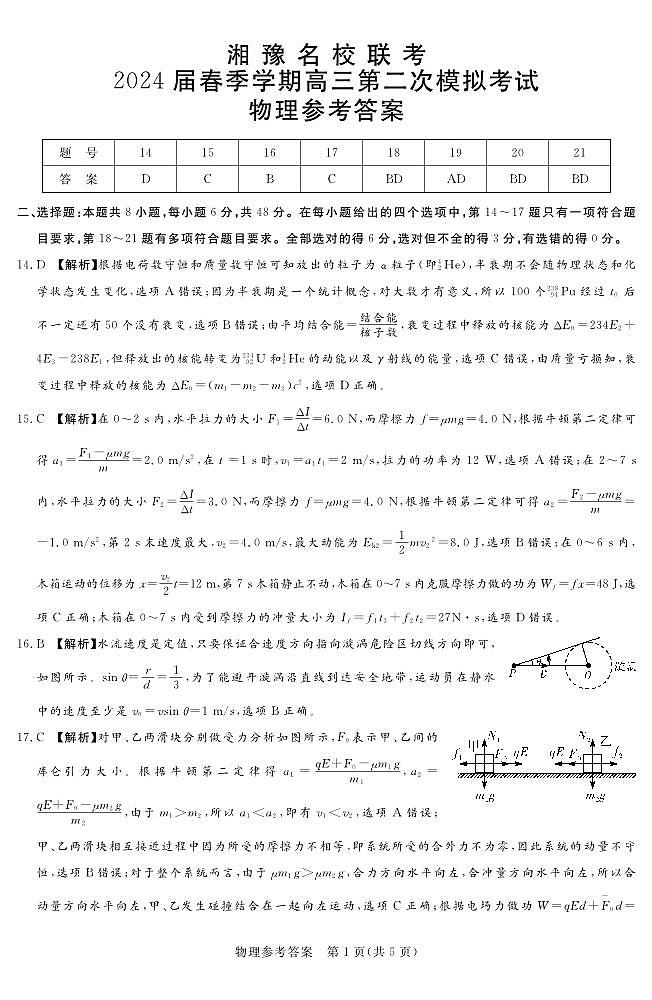 湘豫名校联考
2024届春季学期高三第二次模拟考试
物理参考答案
题 号 14 15 16 17 18 19 20 21
答 案 D C B C BD AD BD BD
二、选择题:本题共8小题,每小题6分,共48分。在每小题给出的四个选项中,第14~17题只有一项符合题
目要求,第18~21题有多项符合题目要求。全部选对的得6分,选对但不全的得3分,有选错的得0分。
14.D 【解析】根据电荷数守恒和质量数守恒可知放出的粒子为α粒子(即⁴₂He),半衰期不会随物理状态和化
学状态发生变化,选项A错误;因为半衰期是一个统计概念,对大数才有意义,所以100个²³⁸₉₄Pu经过t₀后
不一定还有50个没有衰变,选项B错误;由平均结合能=结合能/核子数,衰变过程中释放的核能为ΔE₀=234E₂+
4E₃-238E₁,但释放出的核能转变为²³⁴₉₂U和⁴₂He的动能以及γ射线的能量,选项C错误,由质量亏损知,衰
变过程中释放的核能为ΔE₀=(m₁-m₂-m₃)c²,选项D正确。
15.C 【解析】在0~2 s内,水平拉力的大小F₁=ΔI/Δt=6.0 N,而摩擦力f=μmg=4.0 N,根据牛顿第二定律可
得a₁=(F₁-μmg)/m=2.0 m/s²,在t=1 s时,v₁=a₁t₁=2 m/s,拉力的功率为12 W,选项A错误;在2~7 s
内,水平拉力的大小F₂=ΔI/Δt=3.0 N,而摩擦力f=μmg=4.0 N,根据牛顿第二定律可得a₂=(F₂-μmg)/m=
-1.0 m/s²,第2 s末速度最大,v₂=4.0 m/s,最大动能为Eₖ₂=1/2mv₂²=8.0 J,选项B错误;在0~6 s内,
木箱运动的位移为x=v₂/2t=12 m,第7 s木箱静止不动,木箱在0~7 s内克服摩擦力做的功为W_f=fx=48 J,选
项C正确;木箱在0~7 s内受到摩擦力的冲量大小为I_f=f₁t₁+f₂t₂=27N·s,选项D错误。
16.B 【解析】水流速度是定值,只要保证合速度方向指向漩涡危险区切线方向即可,
如图所示。sin θ=r/d=1/3,为了能避开漩涡沿直线到达安全地带,运动员在静水
中的速度至少是v₀=vsin θ=1 m/s,选项B正确。
P
θ
v
O
漩涡
17.C 【解析】对甲、乙两滑块分别做受力分析如图所示,F₀表示甲、乙间的
库仑引力大小。根据牛顿第二定律得a₁=(qE+F₀-μm₁g)/m₁,a₂=
(qE+F₀-μm₂g)/m₂,由于m₁>m₂,所以a₁<a₂,即有v₁<v₂,选项A错误;
甲 N₁ N₂ 乙
f₁ F₀ qE qE F₀ f₂
m₁g m₂g
甲、乙两滑块相互接近过程中因为所受的摩擦力不相等,即系统所受的合外力不为零,因此系统的动量不守
恒,选项B错误;对于整个系统而言,由于μm₁g>μm₂g,合力方向水平向左,合冲量方向水平向左,所以合
动量方向水平向左,甲、乙发生碰撞结合在一起向左运动,选项C正确;根据电场力做功W=qEd+F̄₀d=
物理参考答案 第1页(共5页)